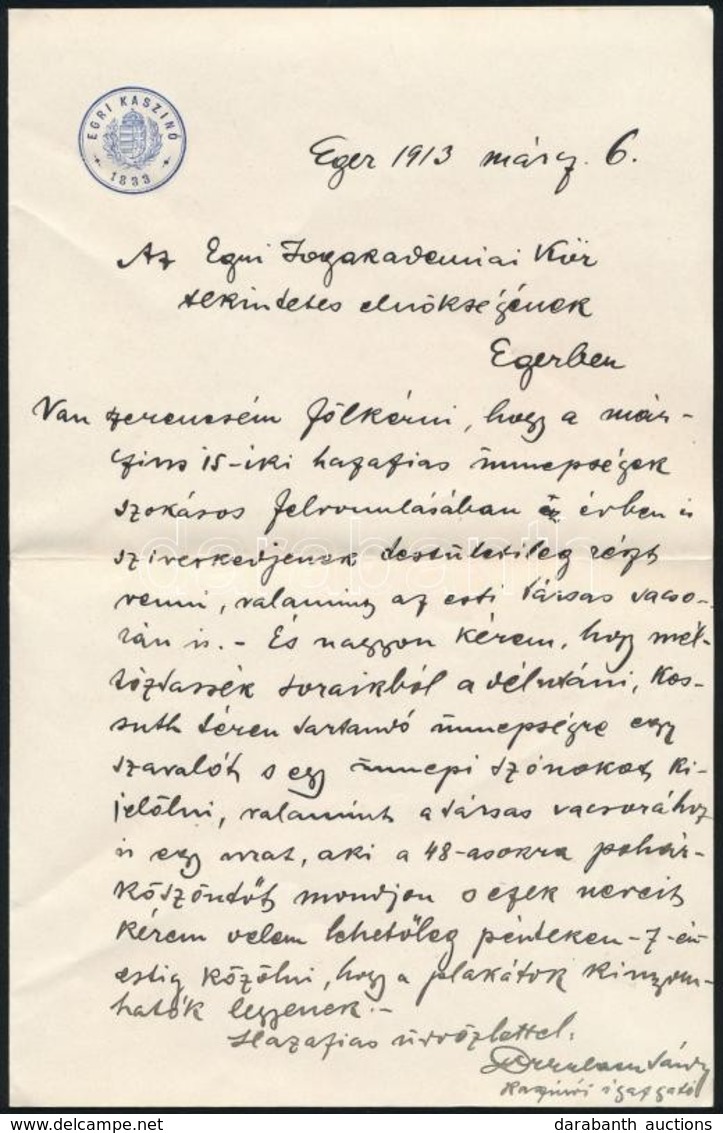 EGRI KASZINÓ
1833
Eger 1913 márcz. 6.
Az Egri Jogakademiai Kör
tekintetes elnökségének
Egerben
Van szerencsém fölkérni, hogy a már-
czius 15-iki hazafias ünnepségek
szokásos felvonulásában ez évben is
sziveskedjenek testületileg részt
venni, valamint az esti társas vacso-
rán is. - És nagyon kérem, hogy mél-
tóztassék soraikból a délutáni, Kos-
suth téren tartandó ünnepségre egy
szavalót s egy ünnepi szónokot ki-
jelölni, valamint a társas vacsorához
is egy urat, aki a 48-asokra pohár-
köszöntőt mondjon s ezek neveit
kérem velem lehetőleg pénteken - 7-én
estig közölni, hogy a plakátok kinyom-
hatók legyenek. -
Hazafias üdvözlettel:
Sándor
kaszinói igazgató
darabanth
darabanth auctions